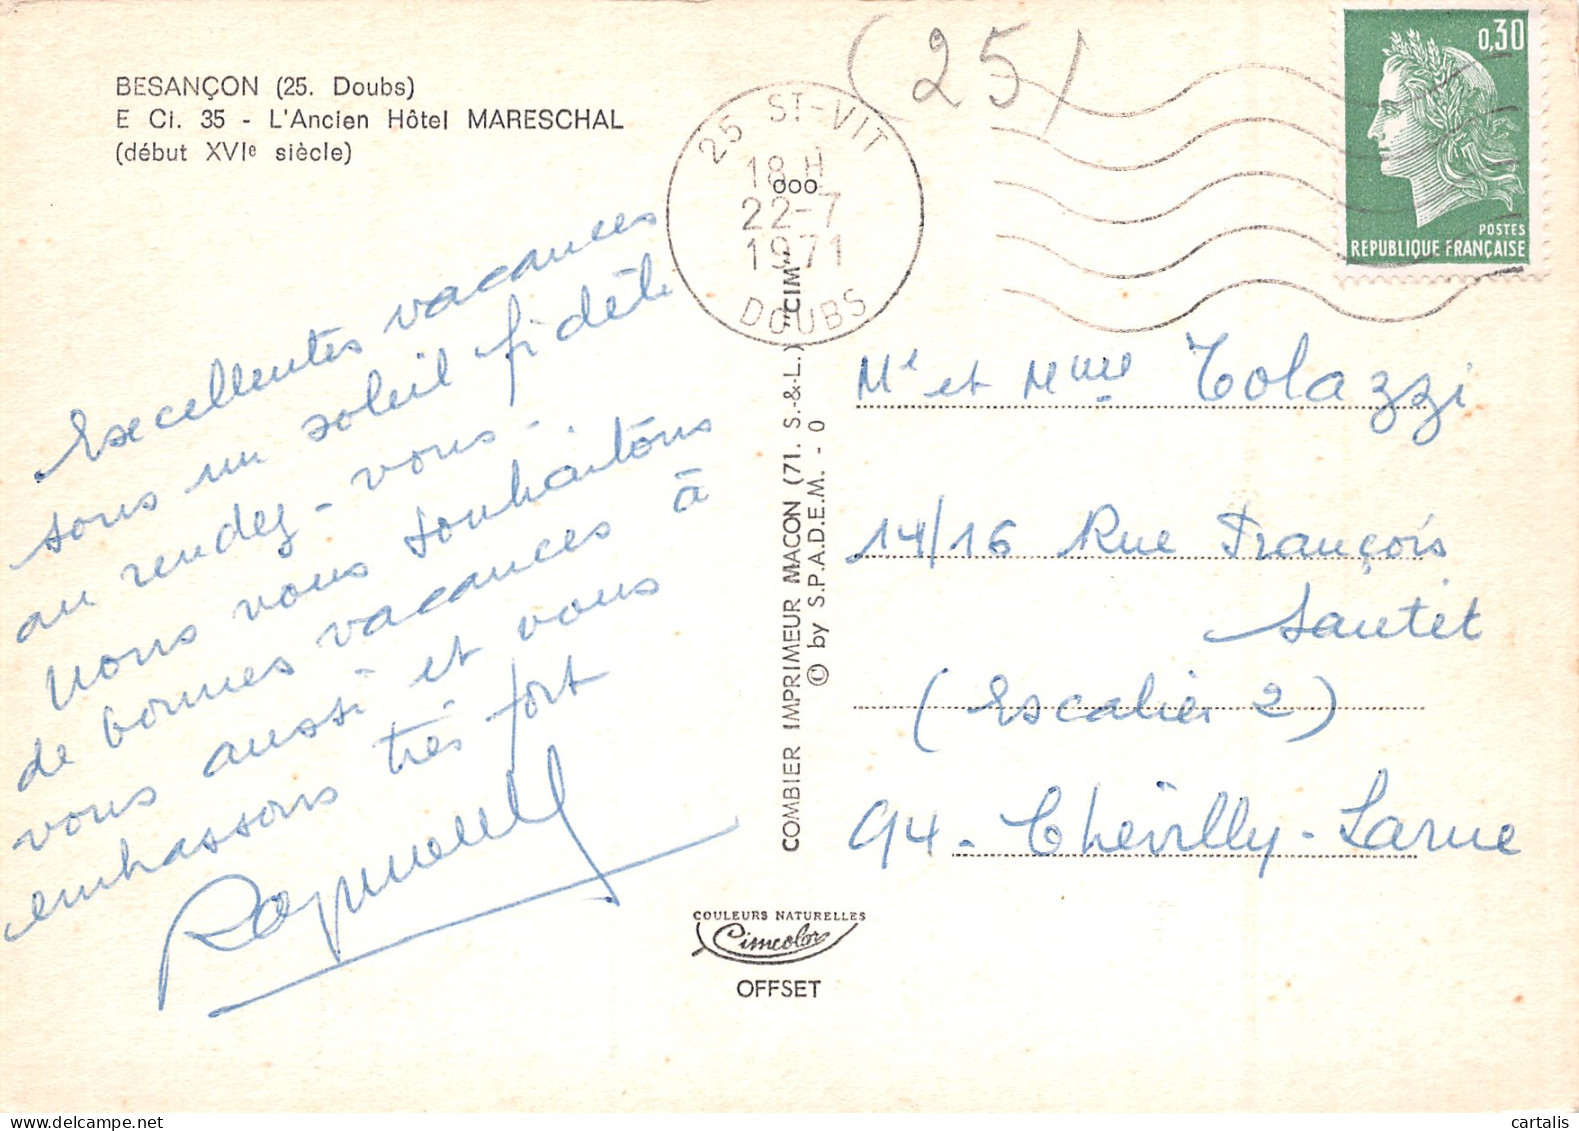 BESANÇON (25. Doubs)
E Ci. 35 - L'Ancien Hôtel MARESCHAL
(début XVIe siècle)
(25)
25 ST-VIT
18 H
22-7
1971
DOUBS
0,30
POSTES
REPUBLIQUE FRANÇAISE
Excellentes vacances
sous un soleil fidèle
au rendez-vous.
Nous vous souhaitons
de bonnes vacances à
vous aussi et vous
embrassons très fort
Raymond
COMBIER IMPRIMEUR MACON (71. S.-&-L.) "CIM"
© by S.P.A.D.E.M. - 0
Mr et Mme Tolazzi
14/16 Rue François
Sautet
(Escalier 2)
94 - Chevilly-Larue
COULEURS NATURELLES
Cimcolor
OFFSET
cartalis